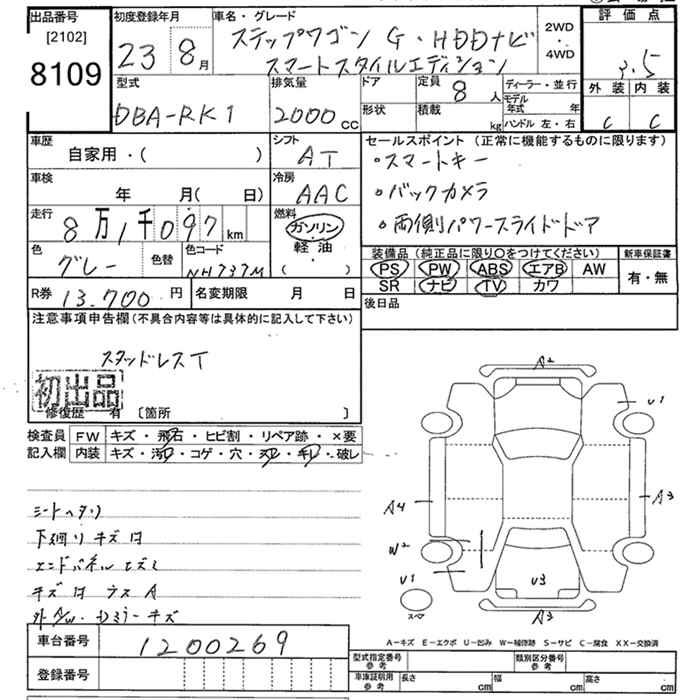 出品番号
[2102]
8109
初度登録年月
23 8月
車名・グレード
ステップワゴン G・HDDナビ
スマートスタイルエディション
2WD
・
4WD
評価点
3.5
外装 内装
C C
型式
DBA-RK1
排気量
2000cc
ドア
形状
定員
8人
積載
kg
ディーラー・並行
モデル年式 年
ハンドル 左・右
車歴
自家用・( )
シフト
AT
車検
年 月( 日)
冷房
AAC
走行
8万1千097km
燃料
ガソリン
・
軽油
( ・ )
色
グレー
色替
色コード
NH737M
セールスポイント (正常に機能するものに限ります)
・スマートキー
・バックカメラ
・両側パワースライドドア
装備品(純正品に限り〇をつけてください)
PS PW ABS エアB AW
SR ナビ TV カワ
新車保証書
有・無
R券 13.700円
名変期限 月 日
後日品
注意事項申告欄(不具合内容等は具体的に記入して下さい)
スタッドレスT
初出品
修復歴 有 〔箇所 〕
検査員
記入欄
FW キズ・飛石・ヒビ割・リペア跡・×要
内装 キズ・汚れ・コゲ・穴・スレ・キレ・破レ
シートヘタリ
下廻りキズ
エンドパネル
キズ A
キズ
A2
U1
A4
A3
W2
U1
U3
A3
スペア
A-キズ E-エクボ U-凹み W-補修跡 S-サビ C-腐食 XX-交換済
車台番号
1200269
登録番号
型式指定番号
参考
類別区分番号
参考
車庫証明用
参考
長さ cm
幅 cm
高さ cm